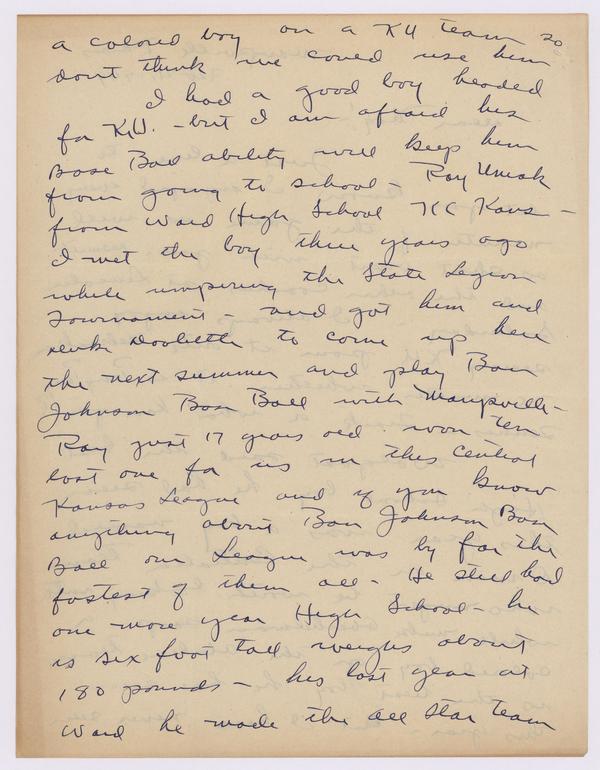 a colored boy on a KU team so
dont think we coued use him
I had a good boy headed
for K.U. - but I am afraid his
Base Ball ability will keep him
from going to school - Ray
from Ward High School KC Kans -
I met the boy three years ago
while umpiring the State Legion
Tournament - and got him and
Doolittle to come up here
the next summer and play Ban
Johnson Base Ball with Marysville -
Ray just 17 years old won ten
lost one for us in this Central
Kansas League and if you know
anything about Ban Johnson Base
Ball our League was by far the
fastest of them all - He still had
one more year High School - he
is six foot tall weighs about
180 pounds - his last year at
Ward he made the all Star team